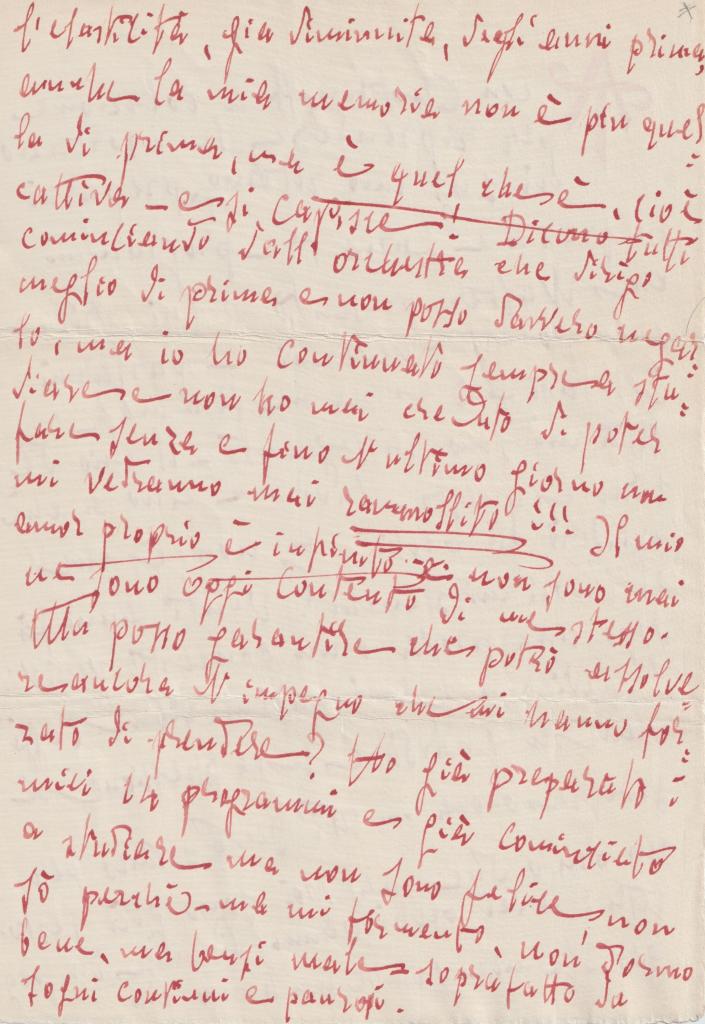 l'elasticità, già diminuita, degli anni prima,
anche la mia memoria non è più quel=
la di prima, ma è quel che è, cioè
cattiva – e si capisce! Dicono tutti
cominciando dall'orchestra che dirigo
meglio di prima e non posso davvero negar=
lo, ma io ho continuato sempre a stu=
diare e non ho mai creduto di poter
fare senza e fino all'ultimo giorno non
mi vedranno mai rammollito!!! Il mio
amor proprio è infinito e non sono mai
né sono oggi contento di me stesso.
Ma posso garantire che potrò assolve=
re ancora l'impegno che mi hanno for=
zato di prendere? Ho già preparato i
miei 14 programmi e già cominciato
a studiare ma non sono felice, non
so perché – ma mi tormento, non dormo
bene, ma bensì male – soprafatto da
sogni continui e paurosi.